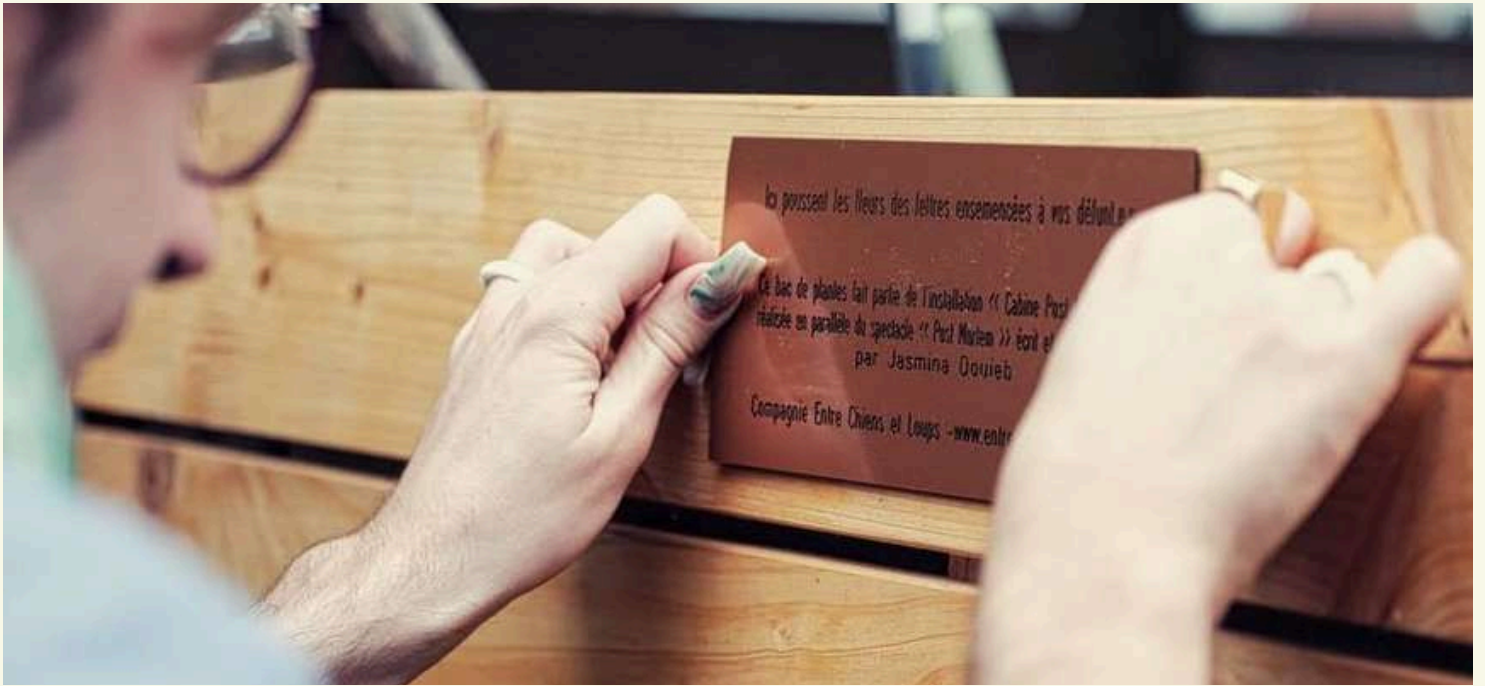 Ici poussent les fleurs des lettres ensemencées à vos
Ce bac de plantes fait partie de l'installation “ Cabine Post
réalisée en parallèle du spectacle “ Post Mortem ” écrit et
par Jasmina Douieb
Compagnie Entre Chiens et Loups -www.entre